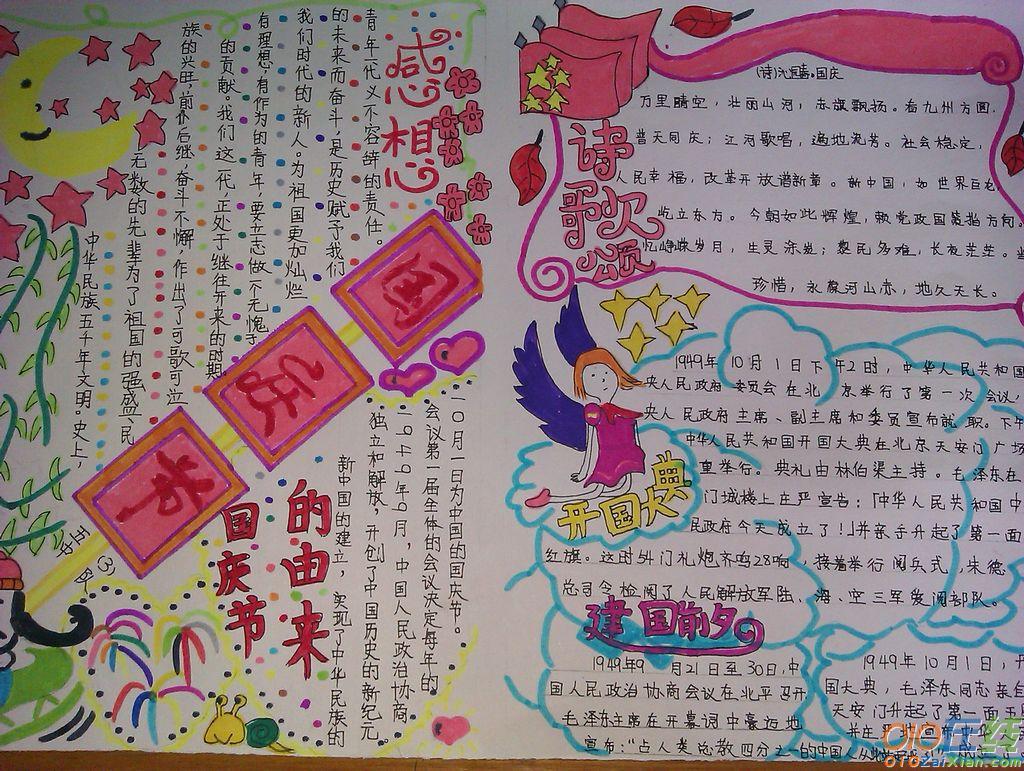 感想
青年一代义不容辞的责任。
的未来而奋斗,是历史赋予我们
我们时代的新人。为祖国更加灿烂
有理想,有作为的青年,要立志做个无愧于
的贡献。我们这一代,正处于继往开来的时期。
族的兴旺,前仆后继,奋斗不懈,作出了可歌可泣
无数的先辈为了祖国的强盛、民
中华民族五千年文明。史上,
国
庆
节
五中队
国庆节
的由来
一〇月一日为中国的国庆节。
会议第一届全体的会议决定每年的
一九四九年九月,中国人民政治协商
独立和解放,开创了中国历史的新纪元。
新中国的建立,实现了中华民族的
诗歌颂
(诗)沁园春。国庆
万里晴空,壮丽山河,赤旗飘扬。看九州方圆,
普天同庆;江河歌唱,遍地流芳。社会稳定,
人民幸福,改革开放谱新章。新中国,如世界巨
屹立东方。今朝如此辉煌,赖党政国策指方向。
忆峥嵘岁月,生灵涂炭;黎民多难,长夜茫茫。
珍惜,永葆河山赤,地久天长。
开国大典
1949年10月1日下午2时,中华人民共和国
央人民政府委员会在北京举行了第一次会议,
央人民政府主席、副主席和委员宣布就职。下午
中华人民共和国开国大典在北京天安门广场
重举行。典礼由林伯渠主持。毛泽东在
门城楼上庄严宣告:「中华人民共和国中
民政府今天成立了!」并亲手升起了第一面
红旗。这时54门礼炮齐鸣28响,接着举行阅兵式,朱德
总司令检阅了人民解放军陆、海、空三军受阅部队。
建国前夕
1949年9月21日至30日,中
国人民政治协商会议在北平召开
毛泽东主席在开幕词中豪迈地
宣布:“占人类总数四分之一的中国人从此
1949年10月1日,开
国大典,毛泽东同志亲自
天安门升起了第一面五
并庄严地宣布中华
OtoZaiXian.com